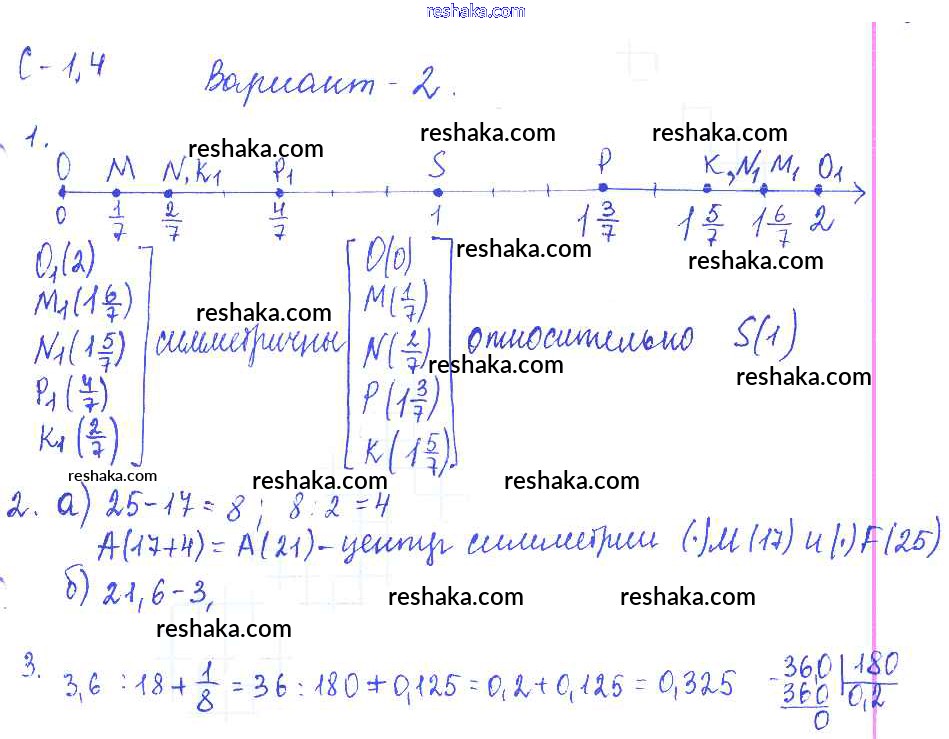 reshaka.com
С-1,4
Вариант-2.
1.
reshaka.com reshaka.com reshaka.com
O M N,K1 P1 S P K, N1 M1 O1
0 1/7 2/7 4/7 1 1 3/7 1 5/7 1 6/7 2
reshaka.com reshaka.com
O1(2) O(0)
M1(1 6/7) M(1/7)
reshaka.com
N1(1 5/7) симметричны N(2/7) относительно S(1)
reshaka.com reshaka.com
P1(4/7) P(1 3/7)
K1(2/7) K(1 5/7).
reshaka.com reshaka.com reshaka.com
2. а) 25-17=8; 8:2=4
A(17+4)=A(21)-центр симметрии (·)M(17) и (·)F(25)
б) 21,6-3,
reshaka.com reshaka.com
reshaka.com
3. 3,6 : 18 + 1/8 = 36 : 180 + 0,125 = 0,2 + 0,125 = 0,325
-36,0 180
360 0,2
0